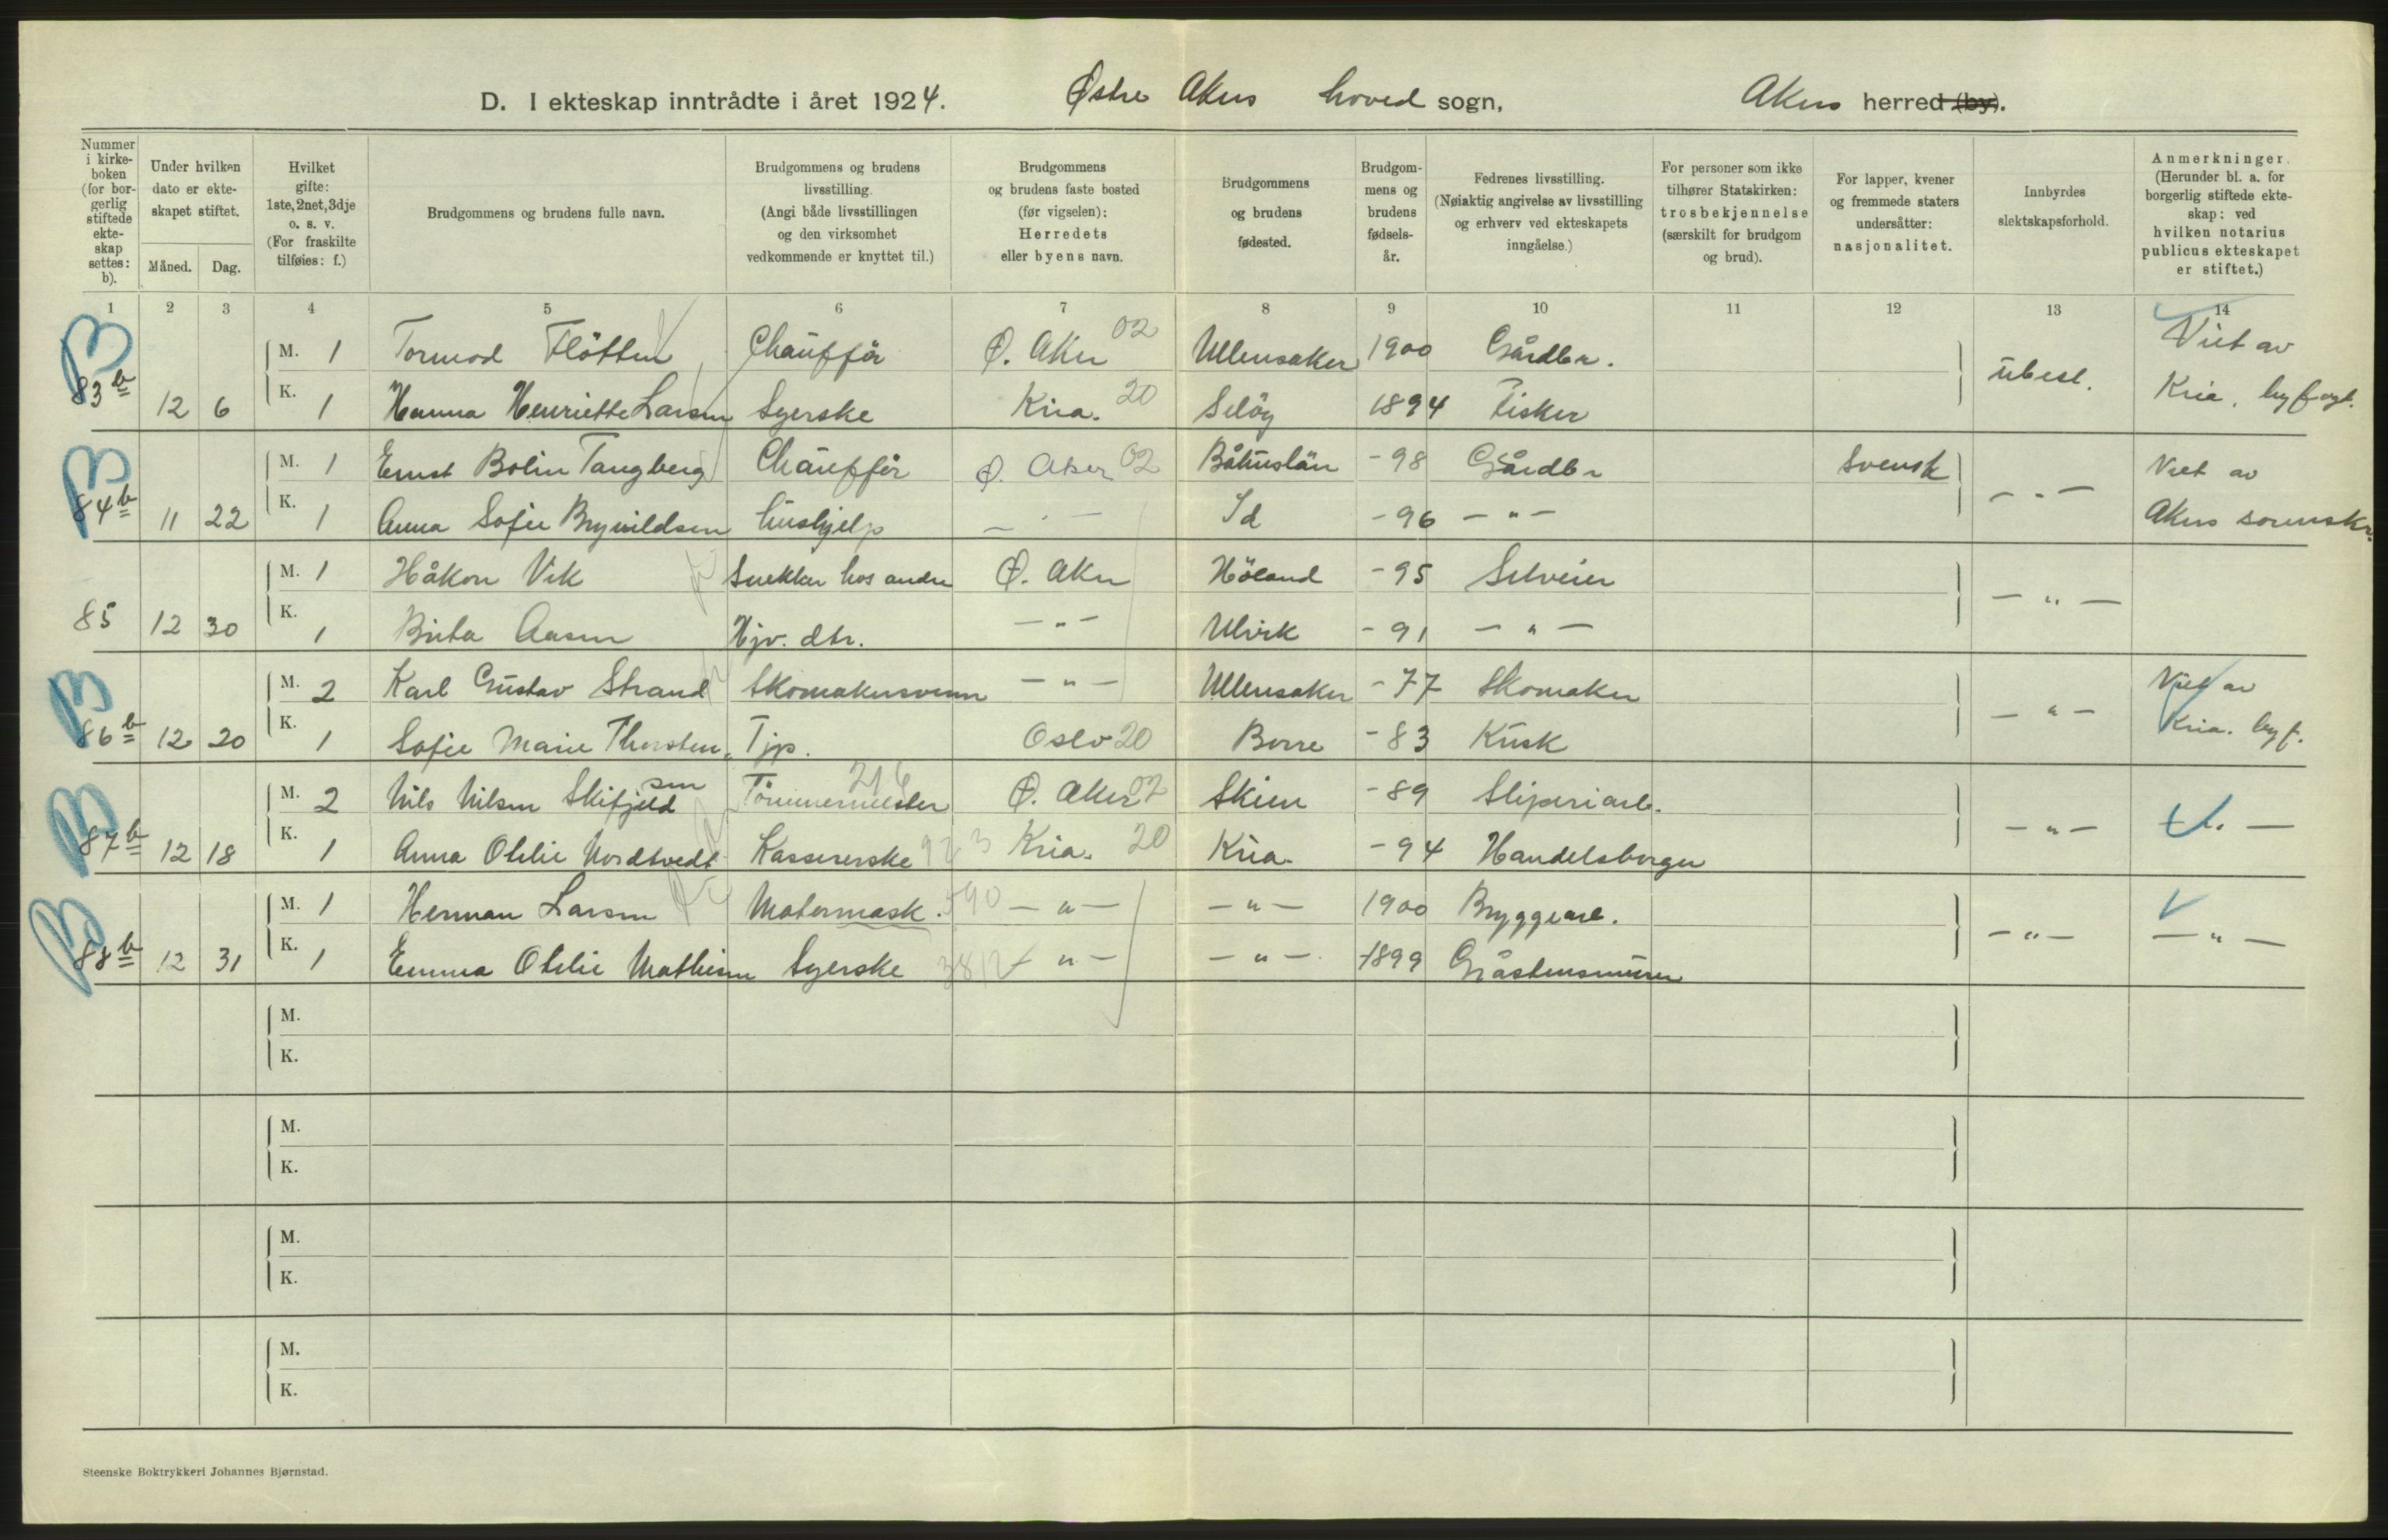 D. I ekteskap inntrådte i året 1924. Østre Akers hoved sogn, Akers herred (by).
Nummer i kirkeboken (for borgerlig stiftede ekteskap settes: b).
Under hvilken dato er ekteskapet stiftet.
Måned. Dag.
Hvilket gifte: 1ste, 2net, 3dje o. s. v. (For fraskilte tilføies: f.)
Brudgommens og brudens fulle navn.
Brudgommens og brudens livsstilling. (Angi både livsstillingen og den virksomhet vedkommende er knyttet til.)
Brudgommens og brudens faste bosted (før vigselen): Herredets eller byens navn.
Brudgommens og brudens fødested.
Brudgommens og brudens fødselsår.
Fedrenes livsstilling. (Nøiaktig angivelse av livsstilling og erhverv ved ekteskapets inngåelse.)
For personer som ikke tilhører Statskirken: trosbekjennelse (særskilt for brudgom og brud).
For lapper, kvener og fremmede staters undersåtter: nasjonalitet.
Innbyrdes slektskapsforhold.
Anmerkninger. (Herunder bl. a. for borgerlig stiftede ekteskap: ved hvilken notarius publicus ekteskapet er stiftet.)
1 2 3 4 5 6 7 8 9 10 11 12 13 14
B
M. 1 Tormod Fløtten Chauffør Ø. Aker 02 Ullensaker 1900 Gårdbr. Viet av
83 b 12 6 K. 1 Hanna Henriette Larsen Syerske Kria. 20 Seløy 1894 Fisker ubesl. Kria. byfogt.
B
M. 1 Ernst Bolin Tangberg Chauffør Ø. Aker 02 Båhuslän -98 Gårdbr Svensk Viet av
84 b 11 22 K. 1 Anna Sofie Brynildsen Hushjelp - " - Id -96 - " - - " - Akers sorenskr.
M. 1 Håkon Vik Snekker hos andre Ø. Aker Höland -95 Selveier
85 12 30 K. 1 Brita Aasen Hjv. dtr. - " - Ulvik -91 - " - - " -
B
M. 2 Karl Gustav Strand Skomakersvenn - " - Ullensaker -77 Skomaker Viet av
86 b 12 20 K. 1 Sofie Marie Thorsten- Tjp. Oslo 20 Borre -83 Kusk - " - Kria. byf.
sen
B
M. 2 Nils Nilsen Skifjeld Tømmermester 216 Ø. Aker 02 Skien -89 Sliperiarb.
87 b 12 18 K. 1 Anna Otelie Nordtvedt Kassererske 923 Kria. 20 Kria. -94 Handelsborger - " - - " -
B
M. 1 Herman Larsen Motormask. 590 - " - - " - 1900 Bryggearb.
88 b 12 31 K. 1 Emma Otelie Mathisen Syerske - " - - " - 1899 Gråstensmurer - " - - " -
M.
K.
M.
K.
M.
K.
M.
K.
Steenske Boktrykkeri Johannes Bjørnstad.